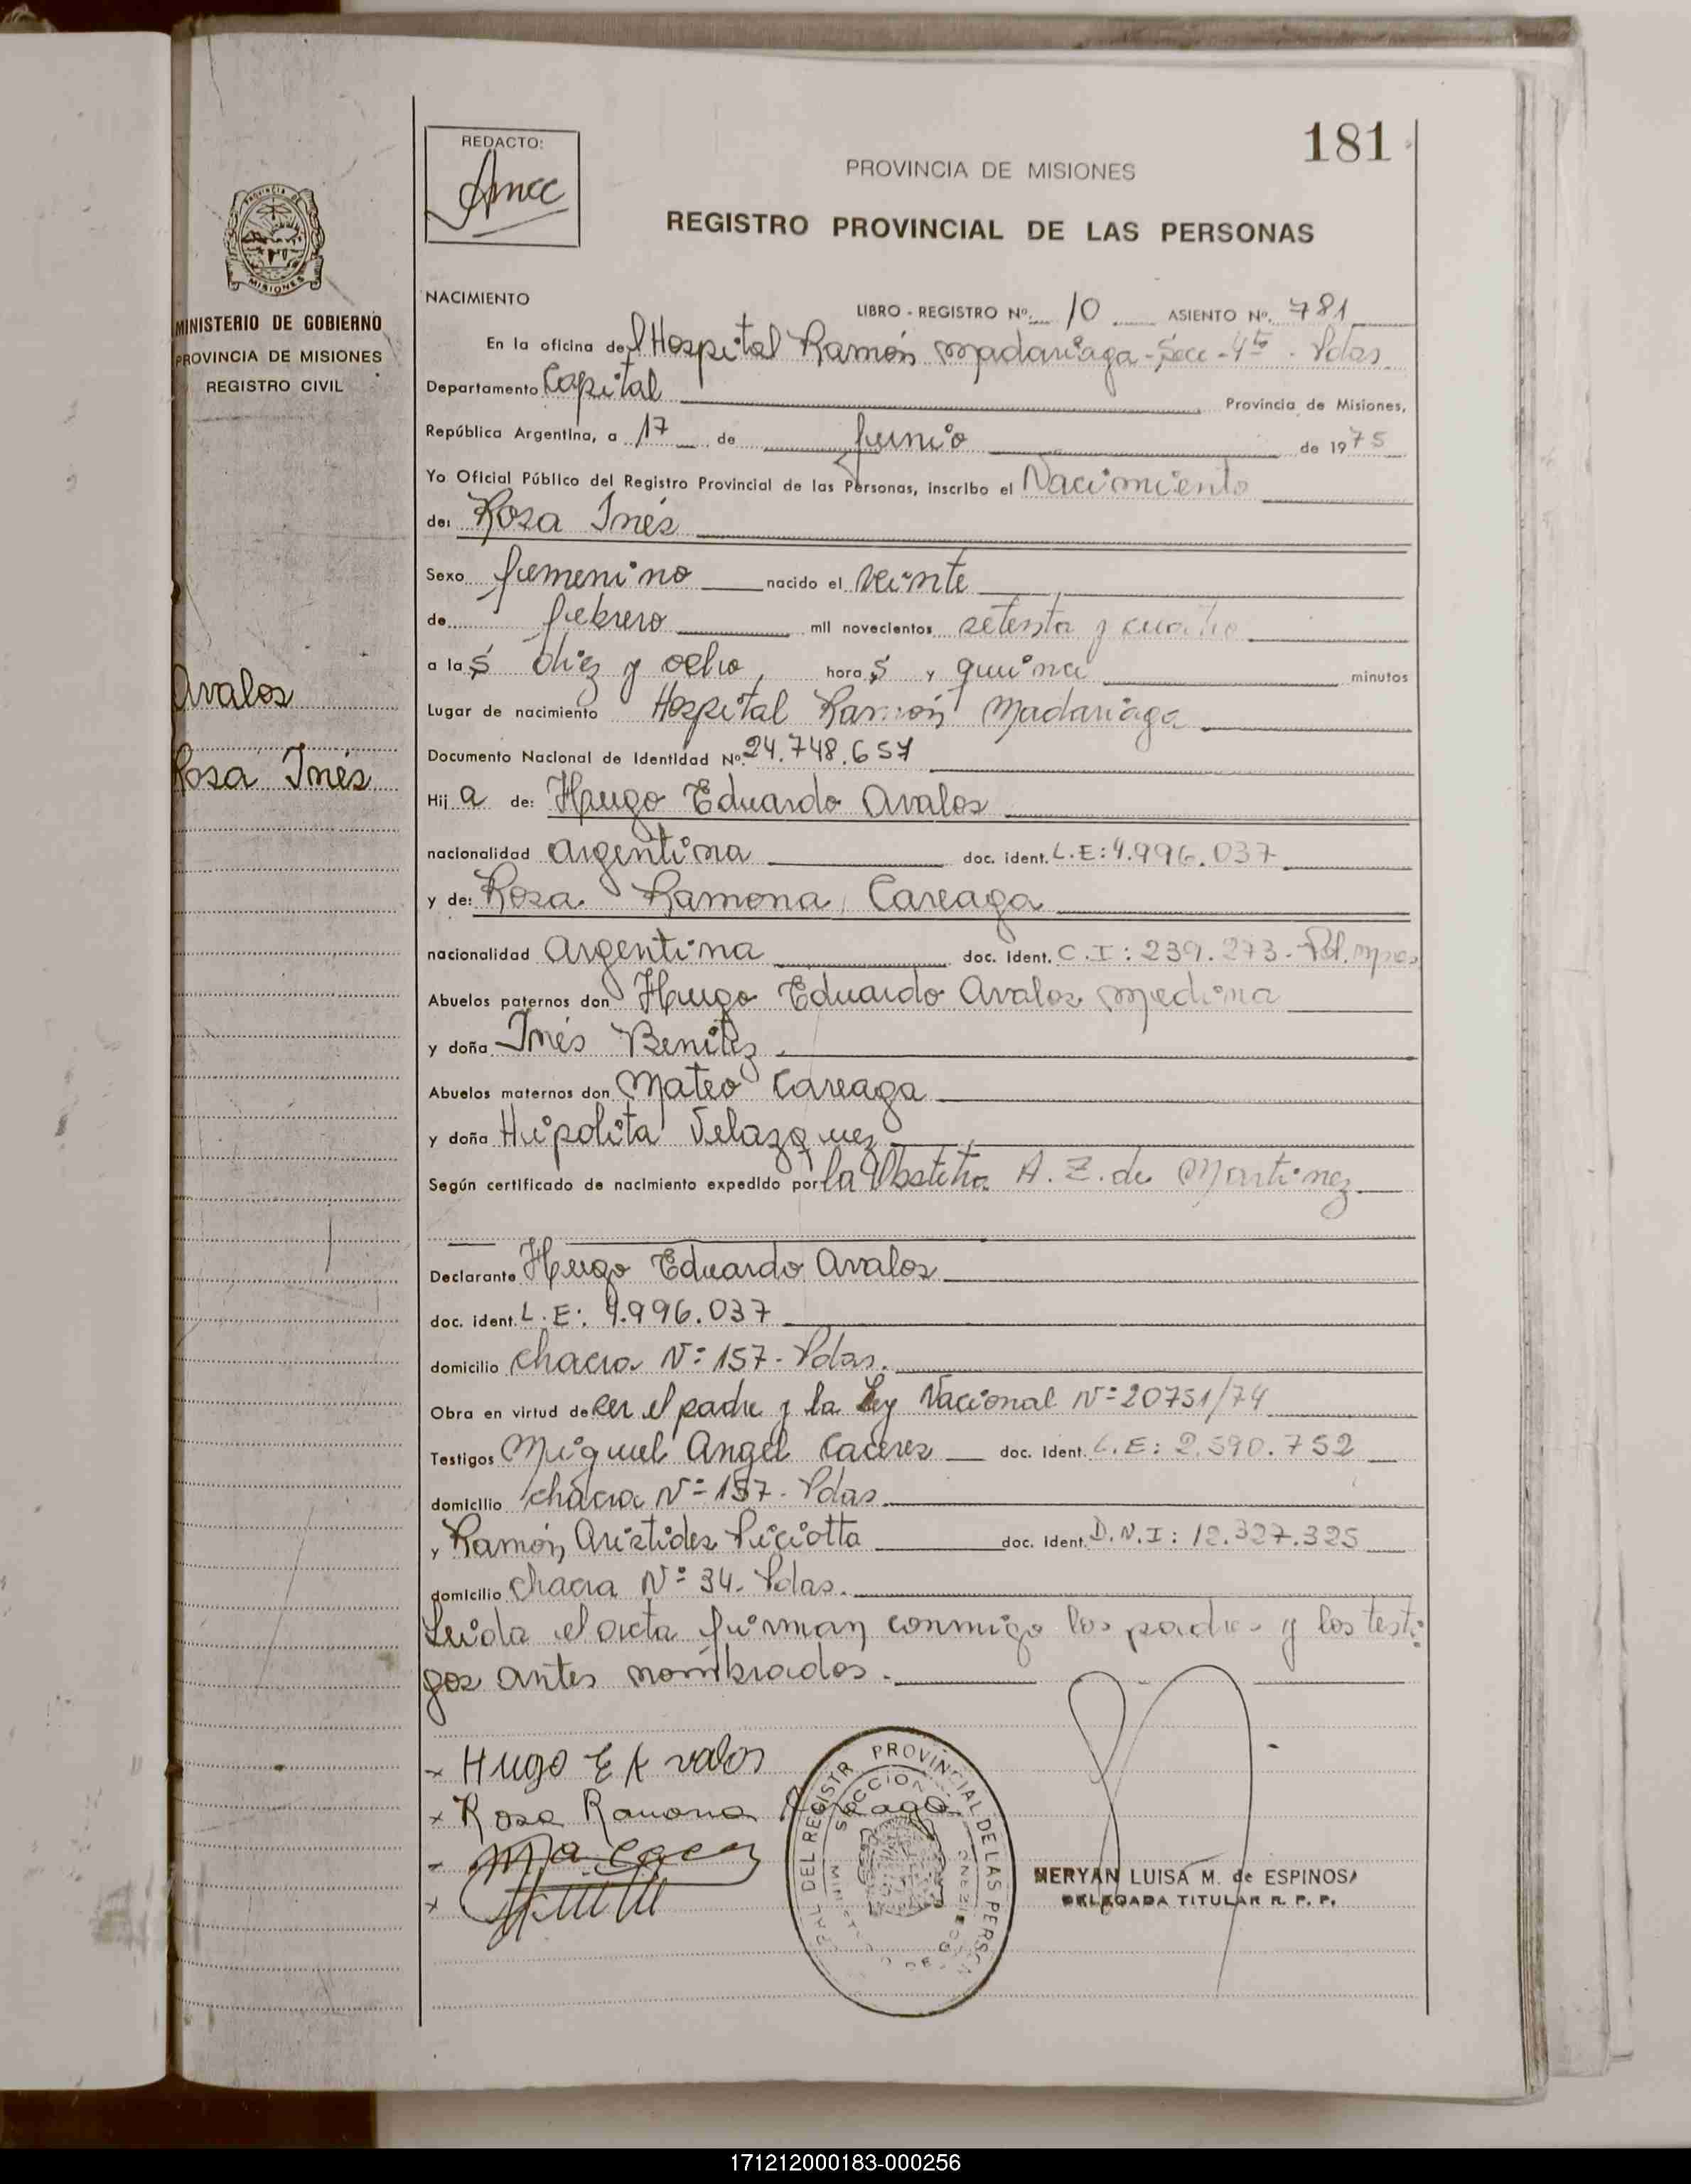 181
REDACTO:
PROVINCIA DE MISIONES
REGISTRO PROVINCIAL DE LAS PERSONAS
PROVINCIA DE
MISIONES
MINISTERIO DE GOBIERNO
PROVINCIA DE MISIONES
REGISTRO CIVIL
Avalos
Rosa Inés
NACIMIENTO
LIBRO - REGISTRO Nº. 10 ASIENTO Nº. 781
En la oficina del Hospital Ramón Madariaga - Secc - 4ta - Pdas
Departamento Capital Provincia de Misiones,
República Argentina, a 17 de Junio de 1975
Yo Oficial Público del Registro Provincial de las Personas, inscribo el Nacimiento
de: Rosa Inés
Sexo femenino nacido el veinte
de febrero mil novecientos setenta y cuatro
a las diez y ocho horas y quince minutos
Lugar de nacimiento Hospital Ramón Madariaga
Documento Nacional de Identidad Nº. 24.748.657
Hija de: Hugo Eduardo Avalos
nacionalidad argentina doc. ident. L.E: 4.996.037
y de: Rosa Ramona Careaga
nacionalidad argentina doc. ident. C.I: 239.273 - Pol. Mnes
Abuelos paternos don Hugo Eduardo Avalos Medina
y doña Inés Benitez
Abuelos maternos don Mateo Careaga
y doña Hipolita Velazquez
Según certificado de nacimiento expedido por la Obstetra A. Z. de Martinez
Declarante Hugo Eduardo Avalos
doc. ident. L.E: 4.996.037
domicilio chacra Nº 157 - Pdas.
Obra en virtud de ser el padre y la Ley Nacional Nº 20751/74
Testigos Miguel Angel Caceres doc. ident. L.E: 2.590.752
domicilio chacra Nº 157 - Pdas
y Ramón Aristides Piciotta doc. ident. D.N.I: 12.327.325
domicilio chacra Nº 34 - Pdas.
Leida el acta firman conmigo los padres y los testi
gos antes nombrados.
Hugo E Avalos
Rosa Ramona Careaga
MERYAN LUISA M. de ESPINOSA
DELEGADA TITULAR R. P. P.
171212000183-000256